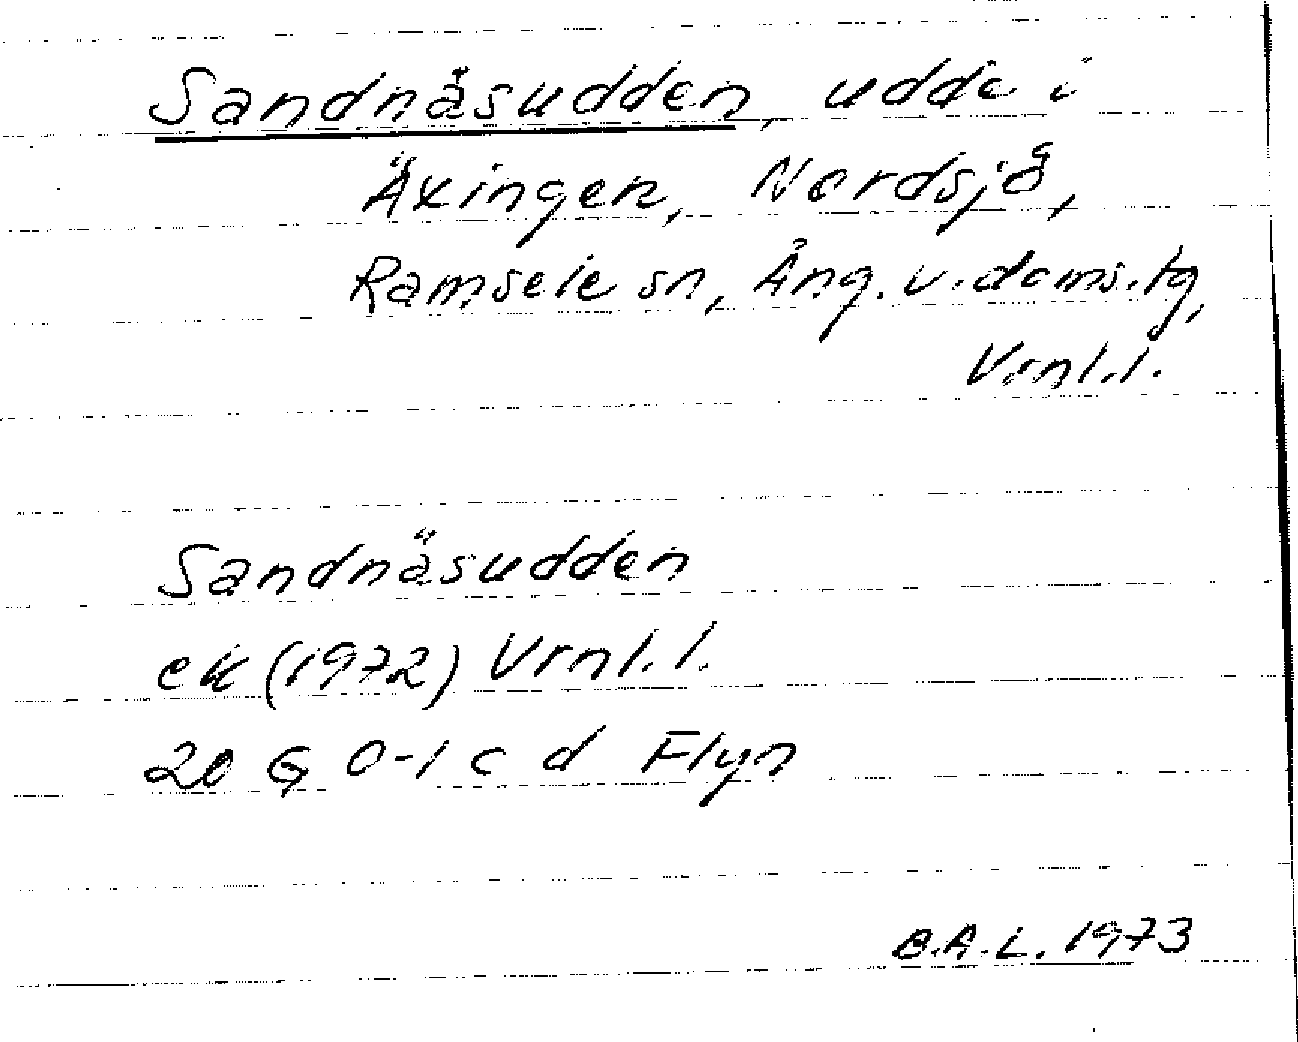 Sandnäsudden, udde i
Äxingen, Nordsjö,
Ramsele sn, Ång. v. doms. tg,
Vrnl. l.
Sandnäsudden
ek (1972) Vrnl. l.
20 G 0-1 c d Flyn
B.A.L. 1973